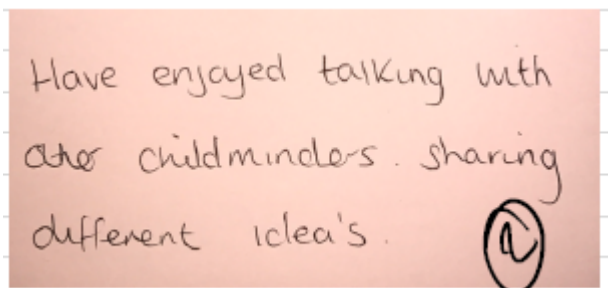 Have enjoyed talking with
other childminders. sharing
different idea's.